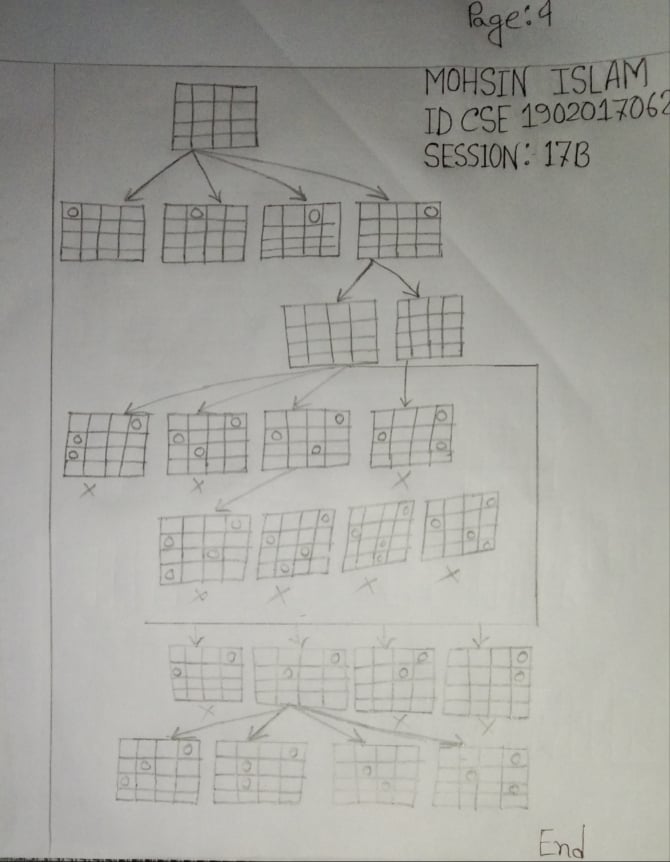 Page:4
MOHSIN ISLAM
ID CSE 1902017062
SESSION: 17B
End